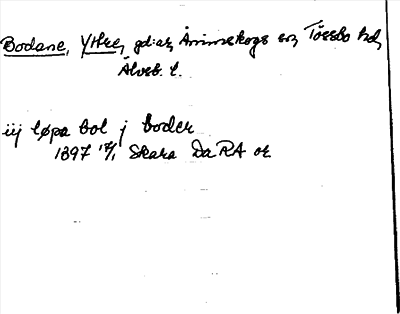 Bodane, Yttre, gd:ar, Ånimskogs sn, Tössbo hd,
Älvsb. l.
iij løpa bol j boder
1397 17/1 Skara DaRA or.